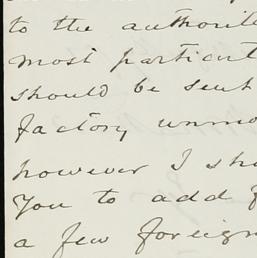 to the authorite
most particul
should be sent
factory unmo
however I sho
You to add f
a few foreign